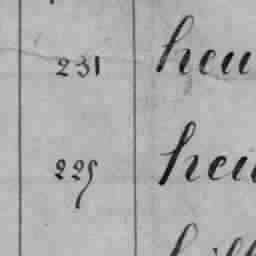 231 heu
225 heu